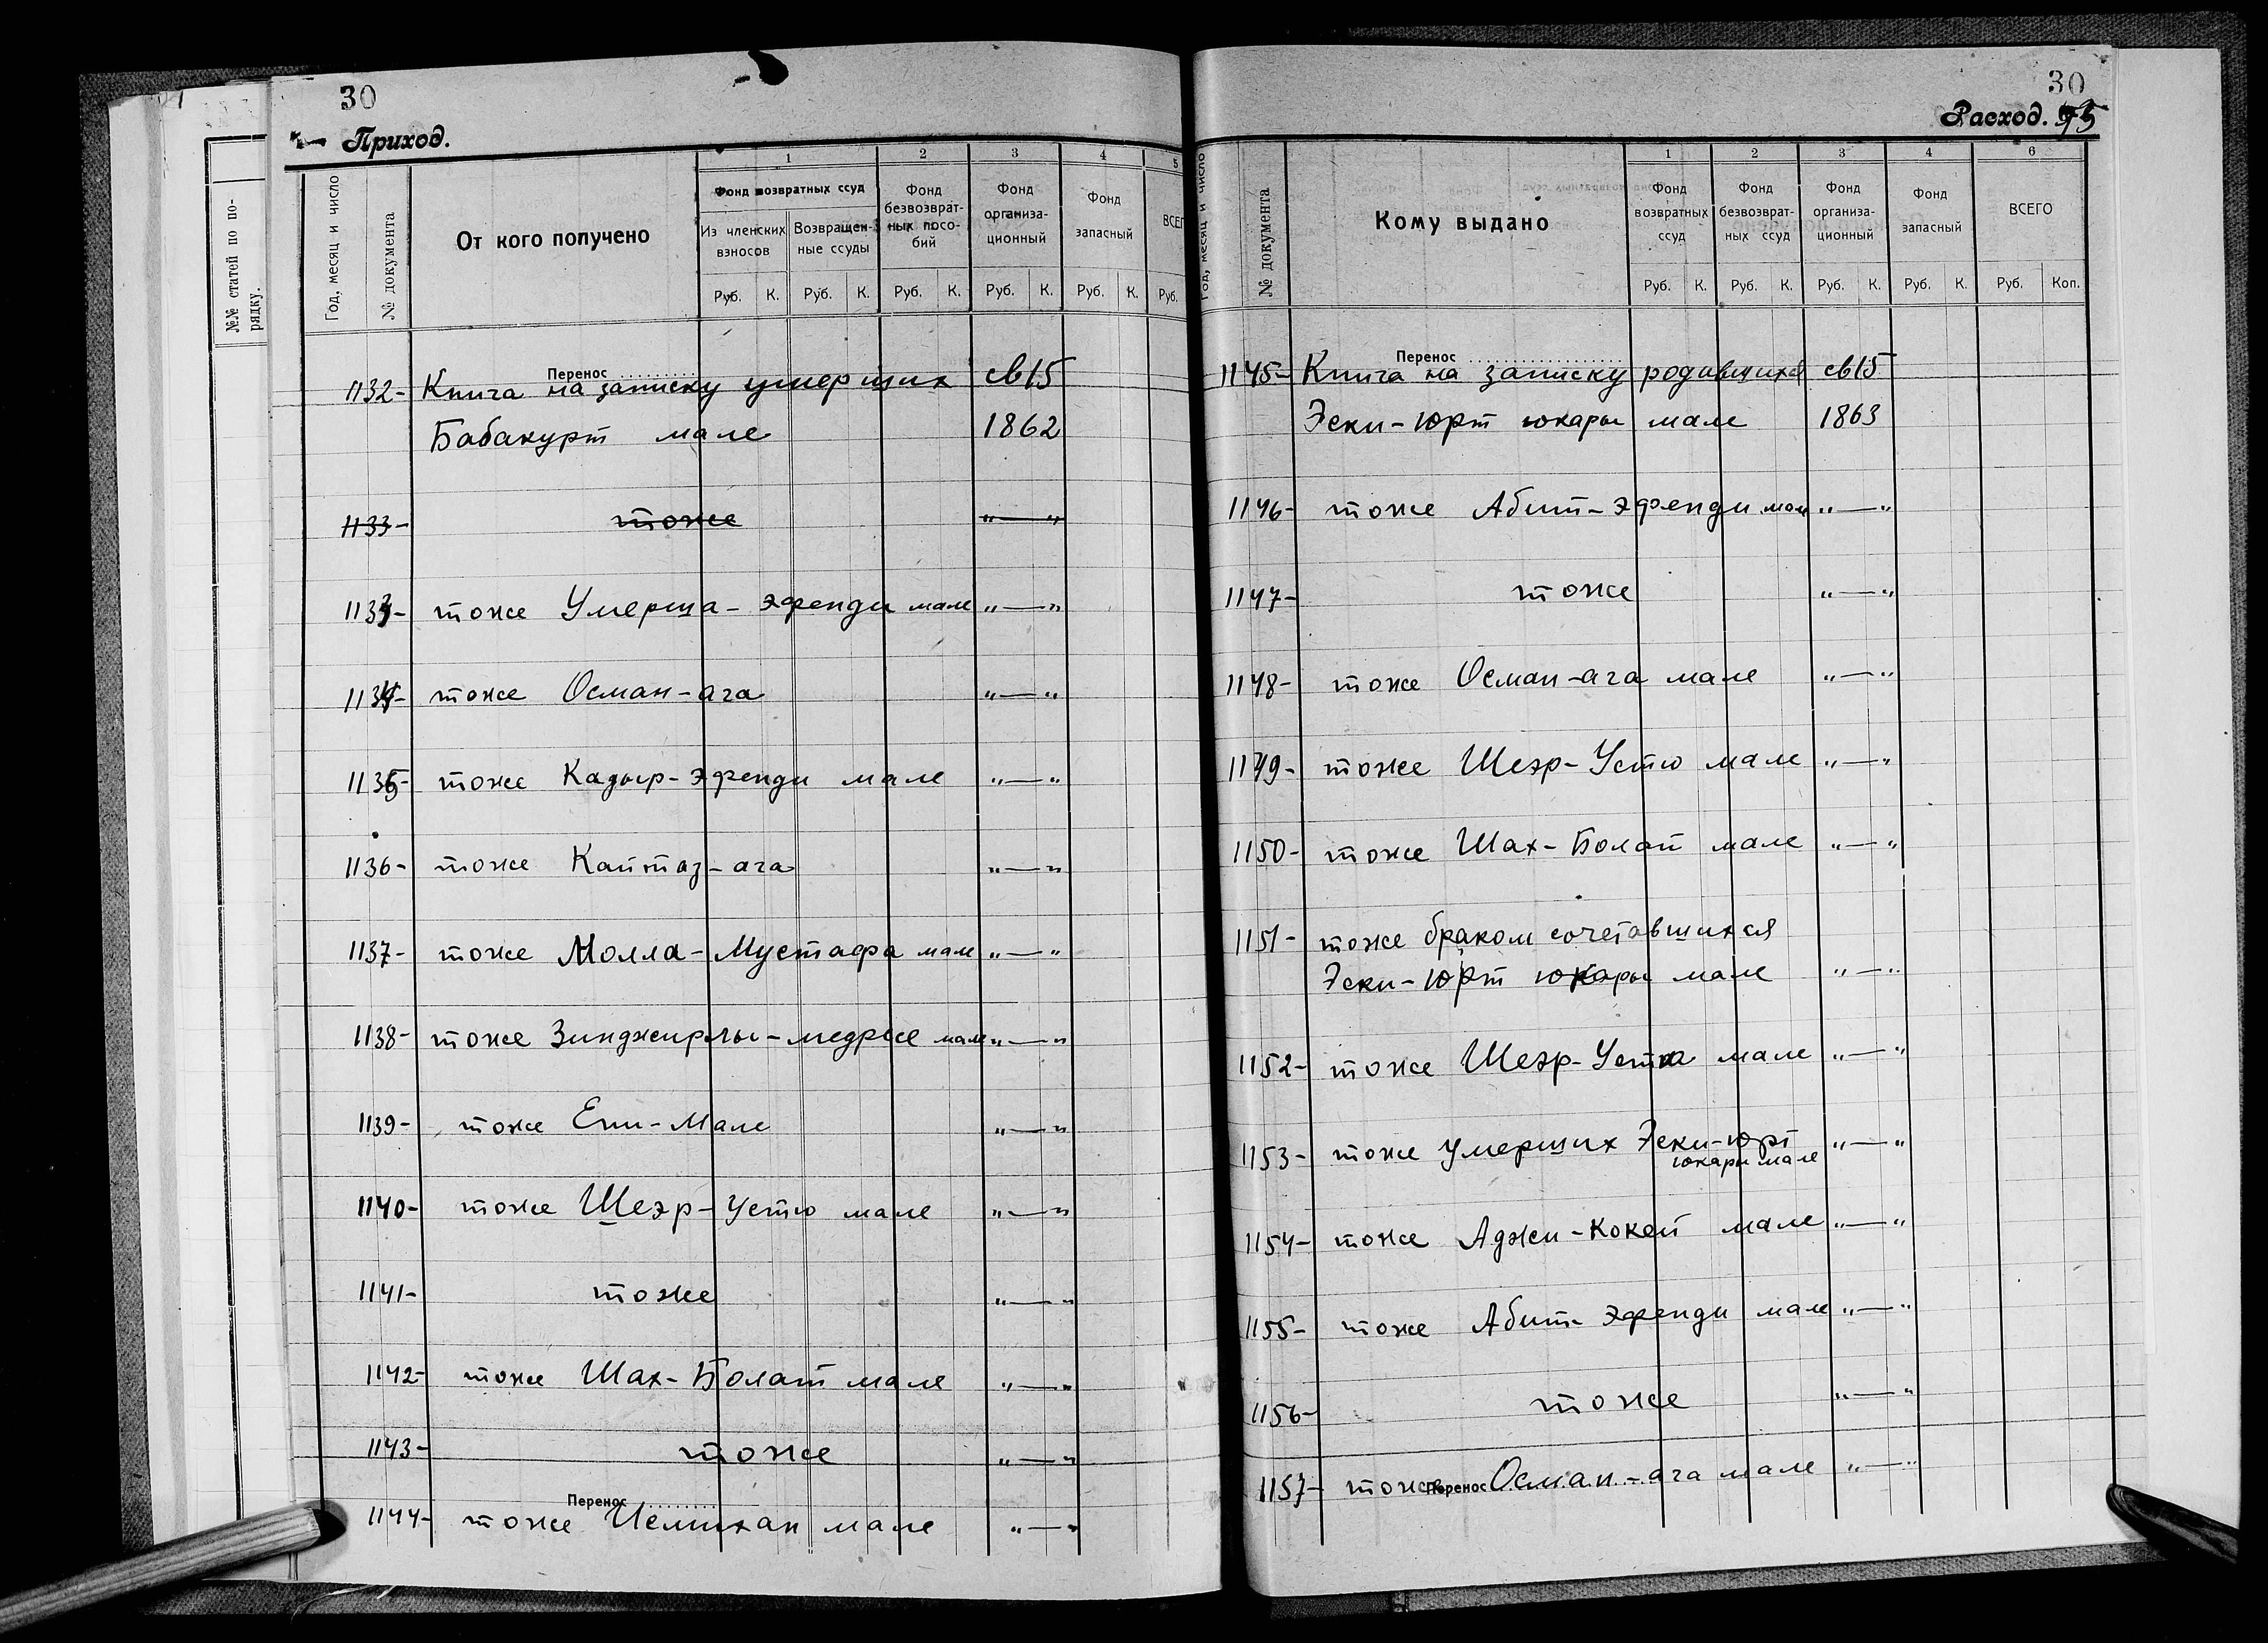 №№ статей по по-
рядку.
30
Приход.
Год, месяц и число
№ документа
От кого получено
1
Фонд возвратных ссуд
Из членских
взносов
Возвращен-
ные ссуды
2
Фонд
безвозврат-
ных посо-
бий
3
Фонд
организа-
ционный
4
Фонд
запасный
5
Руб. К. Руб. К. Руб. К. Руб. К. Руб. К. Руб.
Перенос
1132- Книга на записку умерших св15
Бабакурт мале 1862
1133- тоже "—"
1133- тоже Умерша-эфенди мале "—"
1134- тоже Осман-ага "—"
1135- тоже Кадыр-эфенди мале "—"
1136- тоже Кайтаз-ага "—"
1137- тоже Молла-Мустафа мале "—"
1138- тоже Зинджирлы-медресе мале "—"
1139- тоже Ени-Мале "—"
1140- тоже Шеэр-Устю мале "—"
1141- тоже "—"
1142- тоже Шах-Болат мале "—"
1143- тоже "—"
Перенос
1144- тоже Исмихан мале "—"
30
Расход. 95
Год, месяц и число
№ документа
Кому выдано
1
Фонд
возвратных
ссуд
2
Фонд
безвозврат-
ных ссуд
3
Фонд
организа-
ционный
4
Фонд
запасный
6
ВСЕГО
Руб. К. Руб. К. Руб. К. Руб. К. Руб. Коп.
Перенос
1145- Книга на записку родившихся св15
Эски-Юрт юкары мале 1863
1146- тоже Абит-эфенди мале "—"
1147- тоже "—"
1148- тоже Осман-ага мале "—"
1149- тоже Шеэр-Устю мале "—"
1150- тоже Шах-Болат мале "—"
1151- тоже браком сочетавшихся
Эски-Юрт юкары мале "—"
1152- тоже Шеэр-Уста мале "—"
1153- тоже умерших Эски-юрт "—"
юкары мале
1154- тоже Аджи-Кокей мале "—"
1155- тоже Абит-эфенди мале "—"
1156- тоже "—"
1157- тоже Осман-ага мале "—"
Перенос